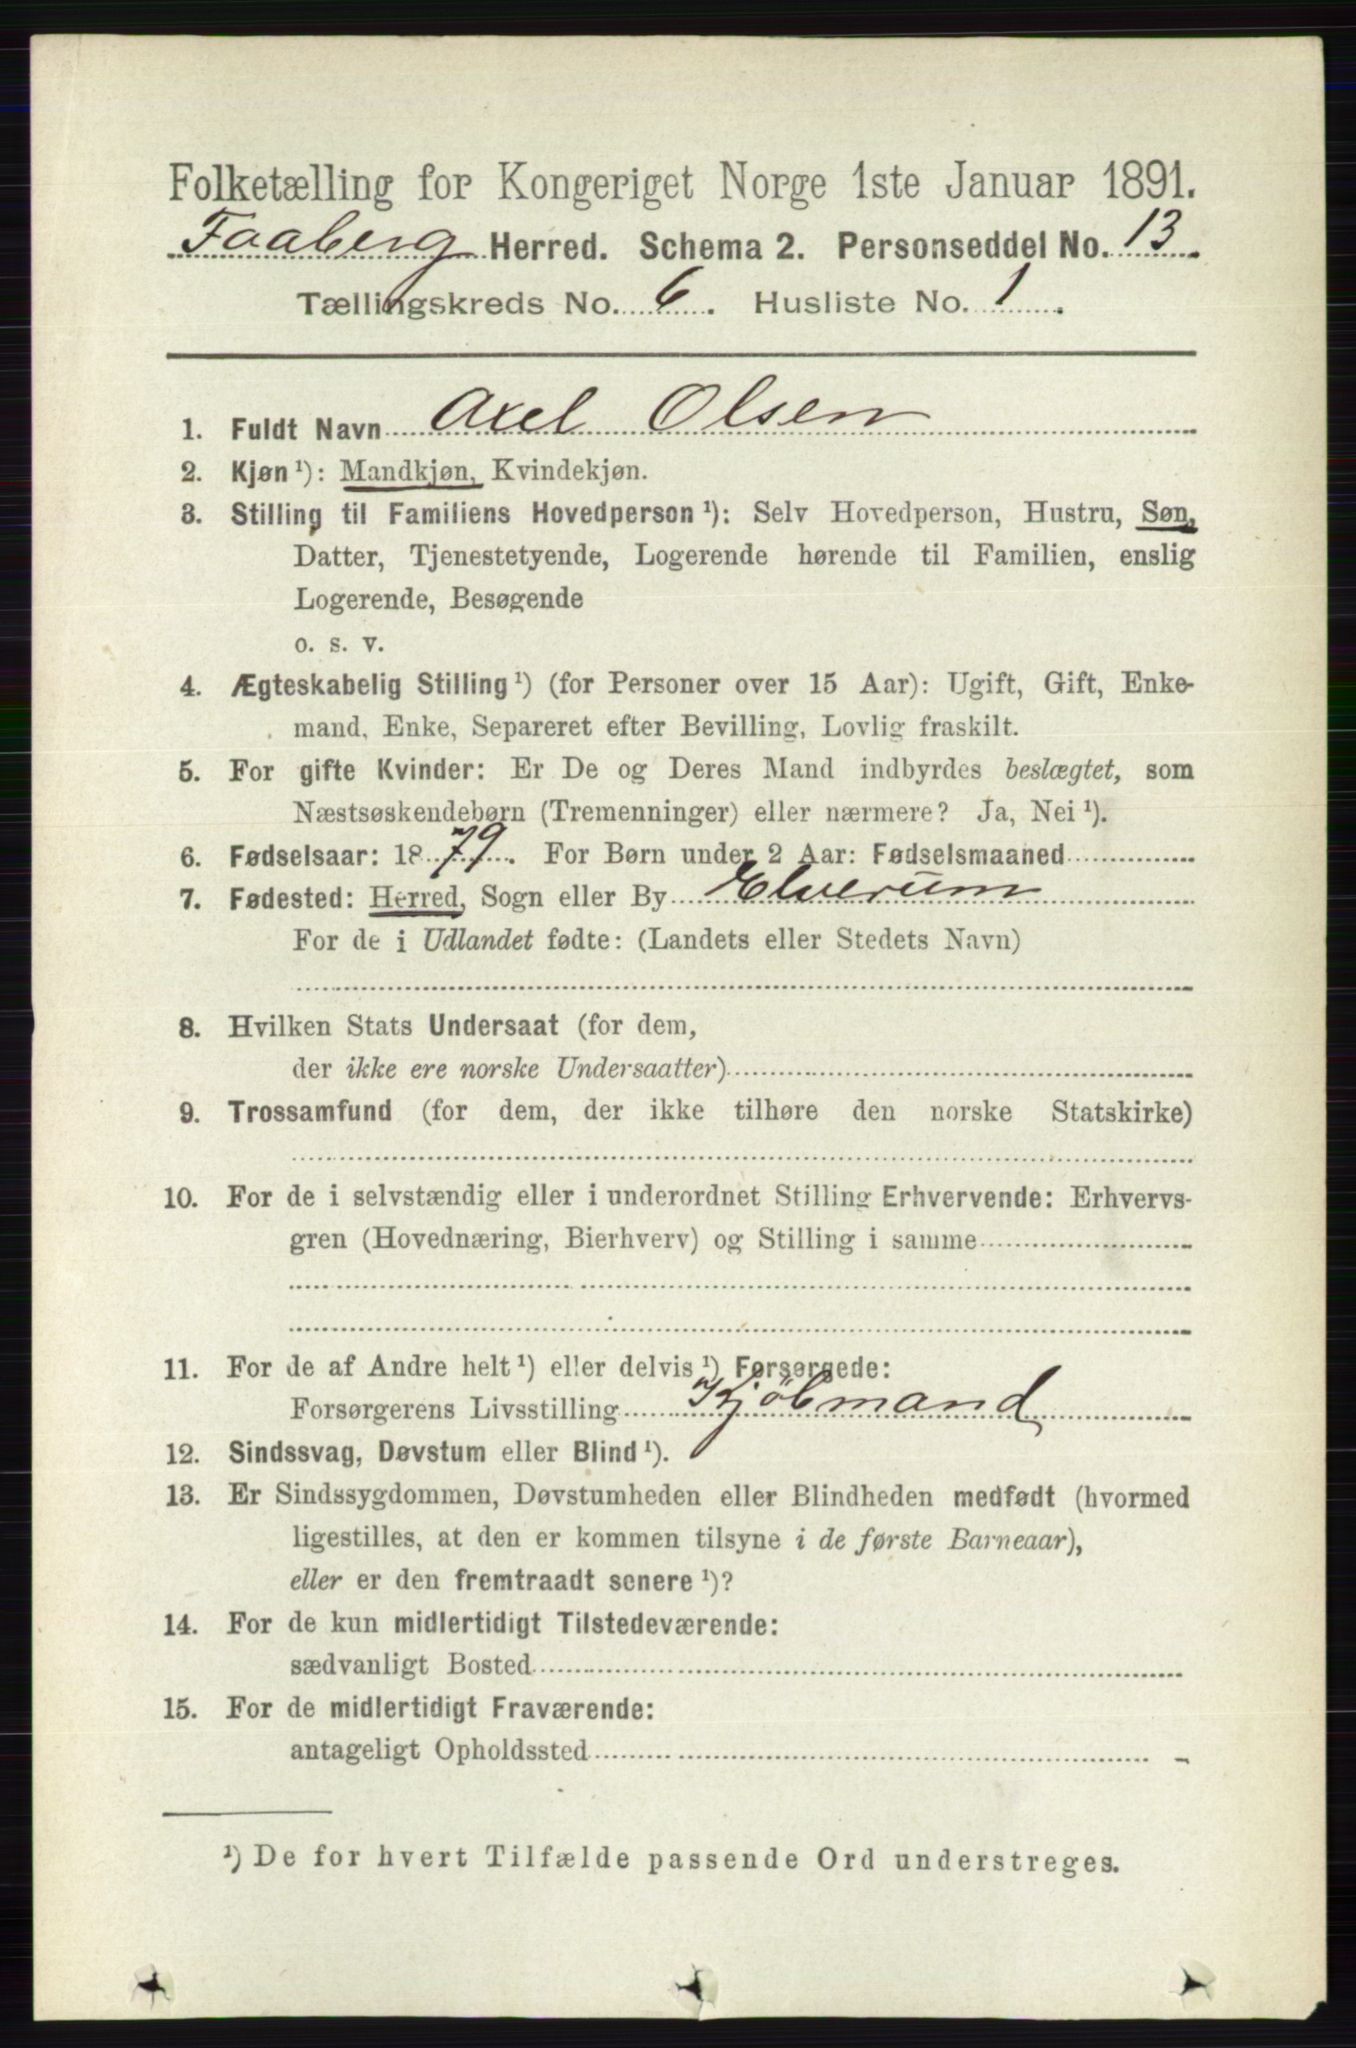 Folketælling for Kongeriget Norge 1ste Januar 1891.
Faaberg Herred. Schema 2. Personseddel No. 13.
Tællingskreds No. 6. Husliste No. 1.
1. Fuldt Navn Axel Olsen
2. Kjøn ¹): Mandkjøn, Kvindekjøn.
3. Stilling til Familiens Hovedperson ¹): Selv Hovedperson, Hustru, Søn,
Datter, Tjenestetyende, Logerende hørende til Familien, enslig
Logerende, Besøgende
o. s. v.
4. Ægteskabelig Stilling ¹) (for Personer over 15 Aar): Ugift, Gift, Enke-
mand, Enke, Separeret efter Bevilling, Lovlig fraskilt.
5. For gifte Kvinder: Er De og Deres Mand indbyrdes beslægtet, som
Næstsøskendebørn (Tremenninger) eller nærmere? Ja, Nei ¹).
6. Fødselsaar: 1879. For Børn under 2 Aar: Fødselsmaaned
7. Fødested: Herred, Sogn eller By Elverum
For de i Udlandet fødte: (Landets eller Stedets Navn)
8. Hvilken Stats Undersaat (for dem,
der ikke ere norske Undersaatter)
9. Trossamfund (for dem, der ikke tilhøre den norske Statskirke)
10. For de i selvstændig eller i underordnet Stilling Erhvervende: Erhvervs-
gren (Hovednæring, Bierhverv) og Stilling i samme
11. For de af Andre helt ¹) eller delvis ¹) Forsørgede:
Forsørgerens Livsstilling Kjöbmand
12. Sindssvag, Døvstum eller Blind ¹).
13. Er Sindssygdommen, Døvstumheden eller Blindheden medfødt (hvormed
ligestilles, at den er kommen tilsyne i de første Barneaar),
eller er den fremtraadt senere ¹)?
14. For de kun midlertidigt Tilstedeværende:
sædvanligt Bosted
15. For de midlertidigt Fraværende:
antageligt Opholdssted
¹) De for hvert Tilfælde passende Ord understreges.